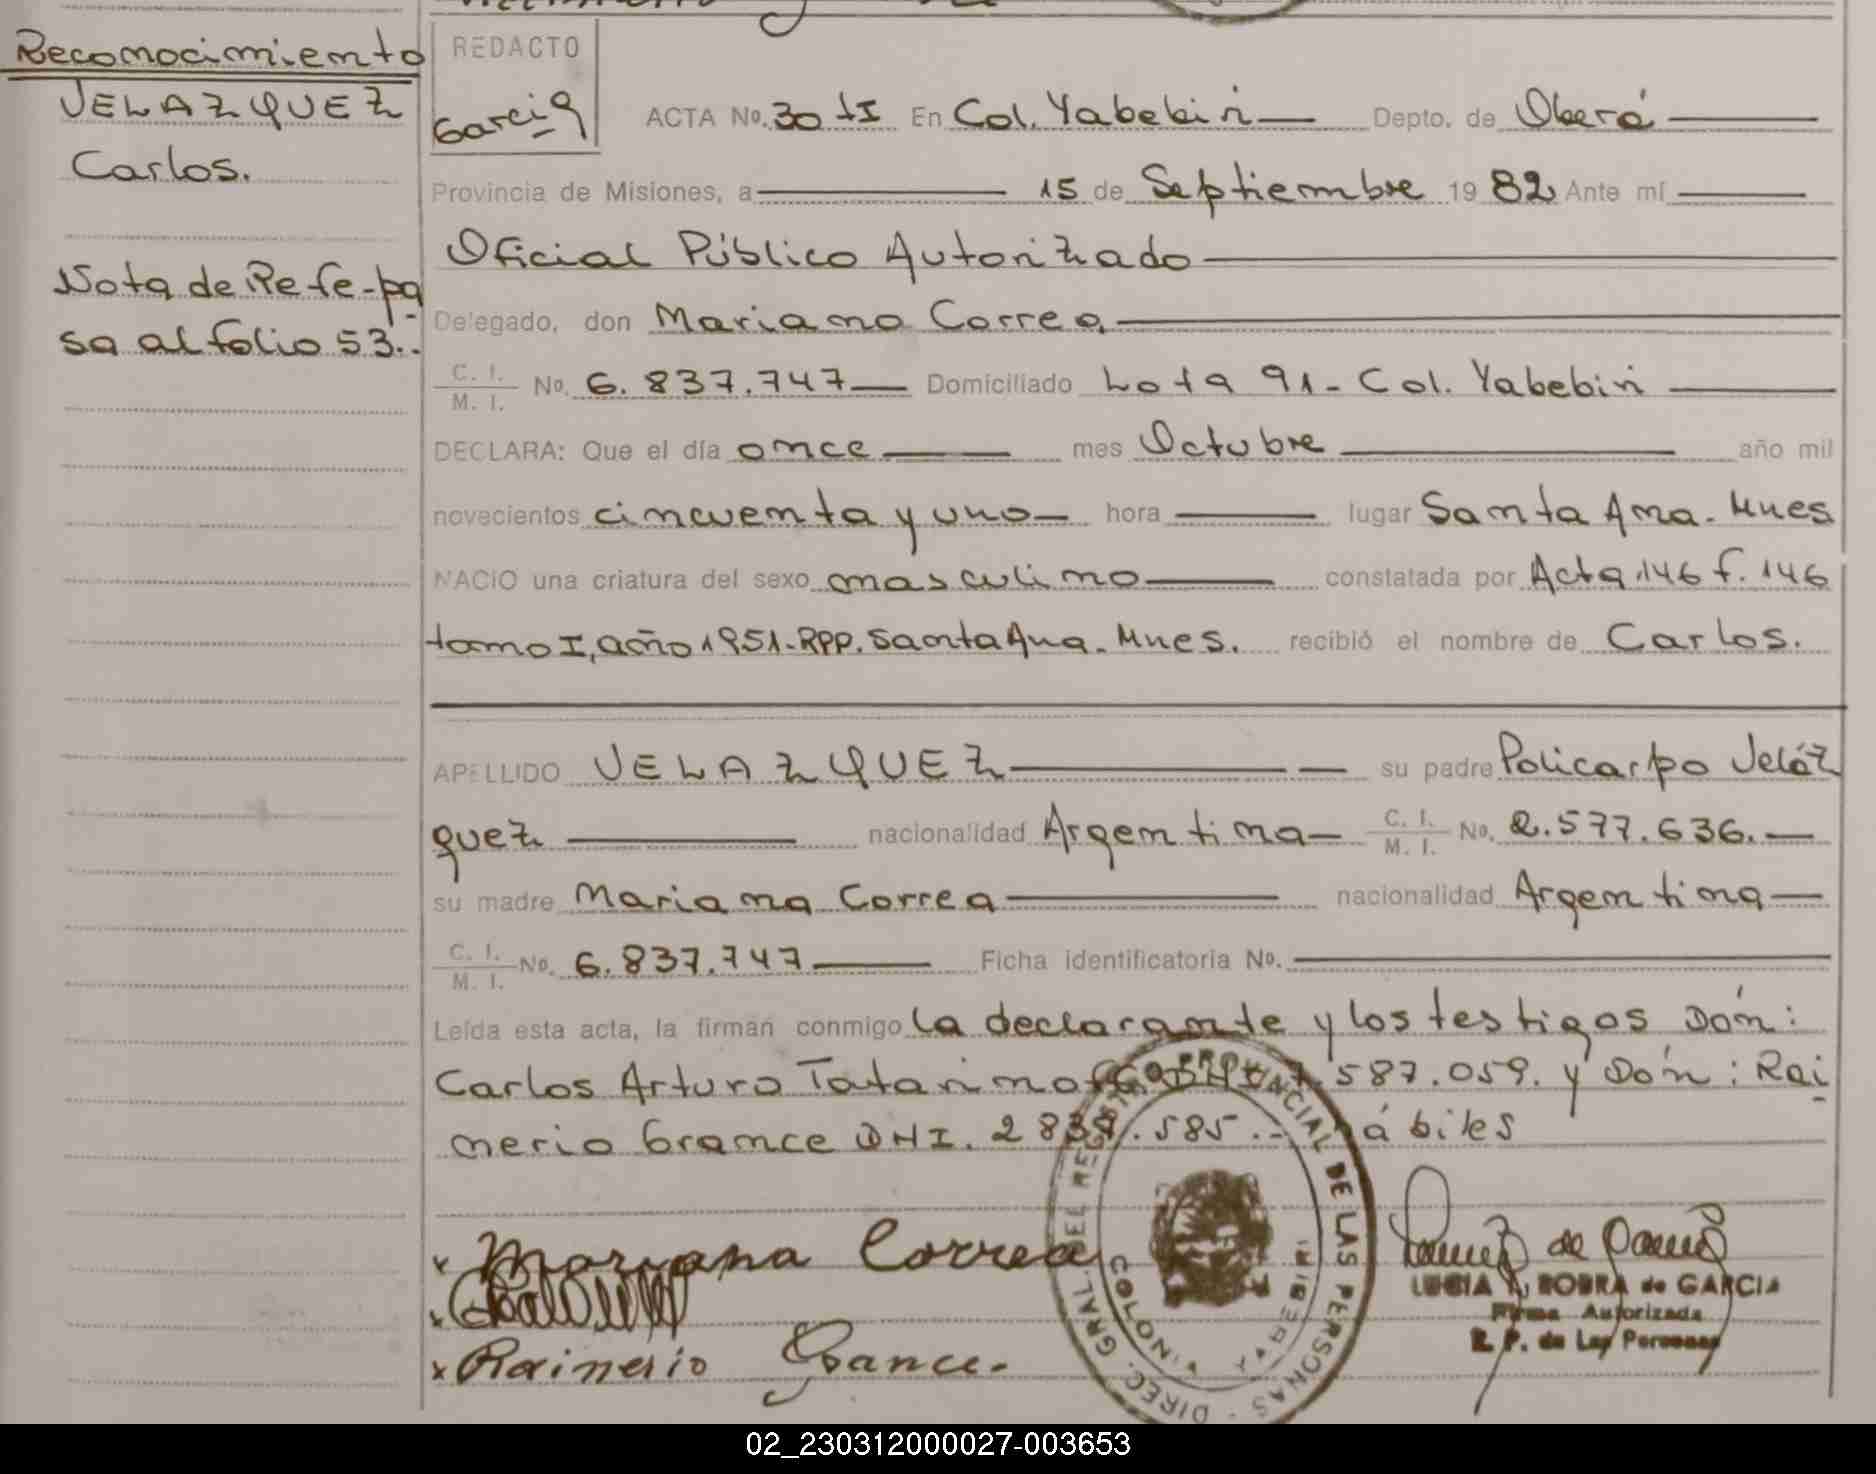 Reconocimiento
VELAZQUEZ
Carlos.
Nota de Refe-pa
sa al folio 53..
REDACTO
Garcia
ACTA No. 30 tI En Col. Yabebiri Depto. de Oberá
Provincia de Misiones, a 15 de Septiembre 1982 Ante mí
Oficial Público Autorizado
Delegado, don Mariana Correa
C. I. / M. I. No. 6.837.747 Domiciliado Lote 91 - Col. Yabebiri
DECLARA: Que el día once mes Octubre año mil
novecientos cincuenta y uno hora lugar Santa Ana. Mnes
NACIO una criatura del sexo masculino constatada por Acta 146 f. 146
tomo I, año 1951-RPP. Santa Ana. Mnes. recibió el nombre de Carlos.
APELLIDO VELAZQUEZ su padre Policarpo Veláz
quez nacionalidad Argentina C. I. / M. I. No. 2.577.636.
su madre Mariana Correa nacionalidad Argentina
C. I. / M. I. No. 6.837.747 Ficha identificatoria No.
Leída esta acta, la firman conmigo la declarante y los testigos Dón:
Carlos Arturo 587.059. y Dón: Rai
nerio Grance DNI. 585.- hábiles
Mariana Correa
Rainerio Grance.
DIREC. GRAL. DEL REGISTRO PROVINCIAL DE LAS PERSONAS
COLONIA YABEBIRI
LUCIA de GARCIA
Firma Autorizada
R. P. de Las Personas
02_230312000027-003653